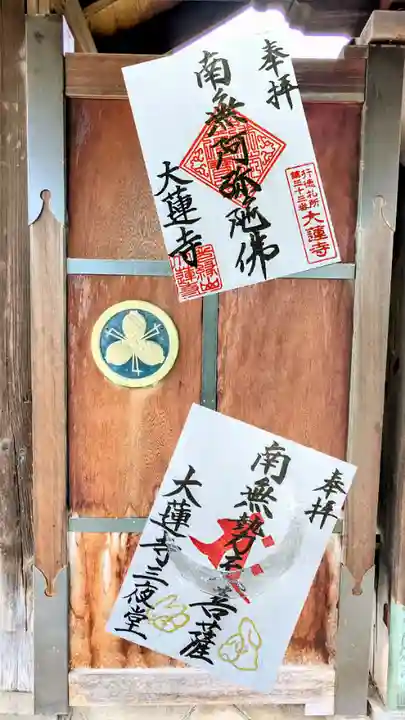 奉拝
南無阿弥陀佛
大蓮寺
行徳札所
第三十三番
大蓮寺
奉拝
南無勢至菩薩
大蓮寺三夜堂